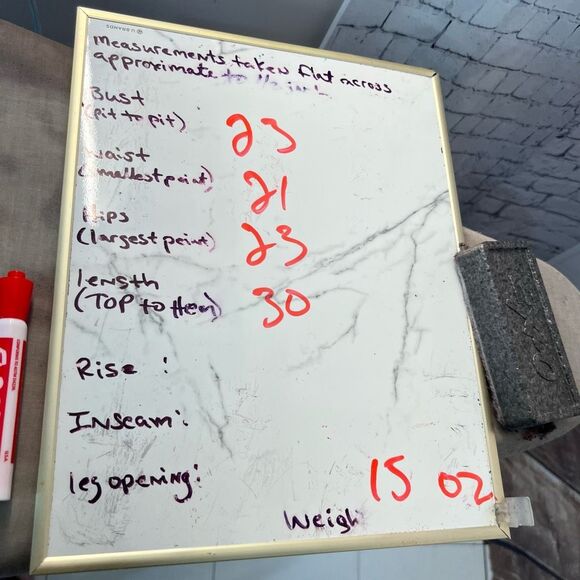 U BRANDS
Measurements taken flat across
approximate to
Bust
(pit to pit) 23
waist
(smallest point) 21
Hips
(largest point) 23
length
(TOP to Hem) 30
Rise :
Inseam:
leg opening:
15 oz
Weigh